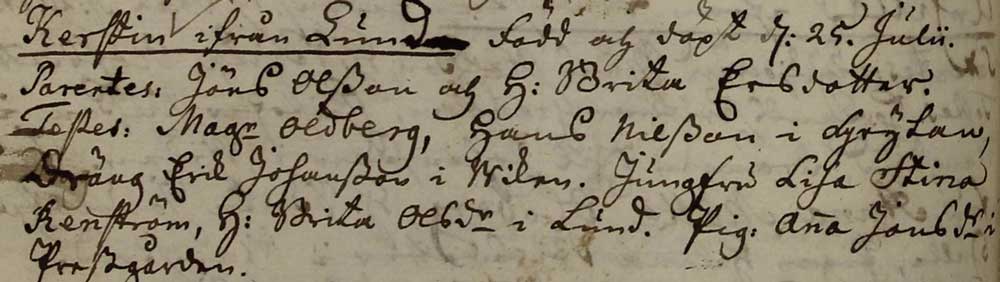 Kerstin ifrån Lund Född och döpt d: 25. Julii.
Parentes: Jöns Olßon och H: Brita Ersdotter.
Testes: Magr Oldberg, Hans Nilßon i Grÿtan,
Dräng Erik Johanßon i Wiken. Jungfru Lisa Stina
Renström, H: Brita Olsdr i Lund. Pig: Aña Jonsdr i
Preßgården.